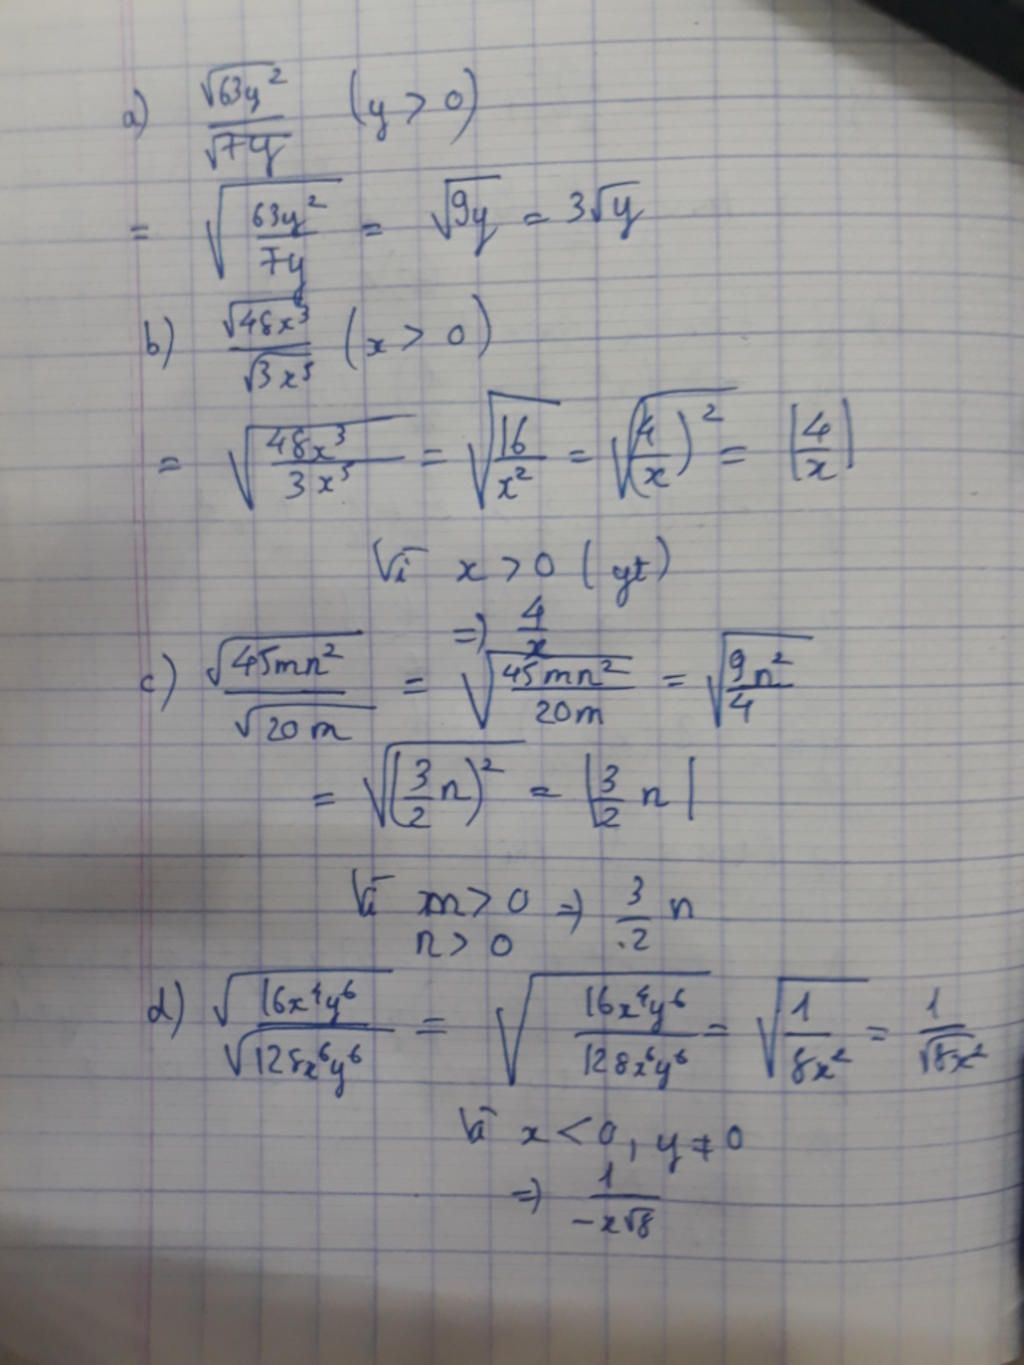 a) √63y² / √7y (y > 0)
= √(63y² / 7y) = √9y = 3√y
b) √48x³ / √3x⁵ (x > 0)
= √(48x³ / 3x⁵) = √(16 / x²) = √(4 / x)² = |4 / x|
Vì x > 0 (gt)
=> 4 / x
c) √45mn² / √20m = √(45mn² / 20m) = √(9n² / 4)
= √(3/2 n)² = |3/2 n|
Vì m > 0 => 3/2 n
n > 0
d) √16x⁴y⁶ / √128x⁶y⁶ = √(16x⁴y⁶ / 128x⁶y⁶) = √(1 / 8x²) = 1 / √8x²
Vì x < 0, y ≠ 0
=> 1 / -x√8